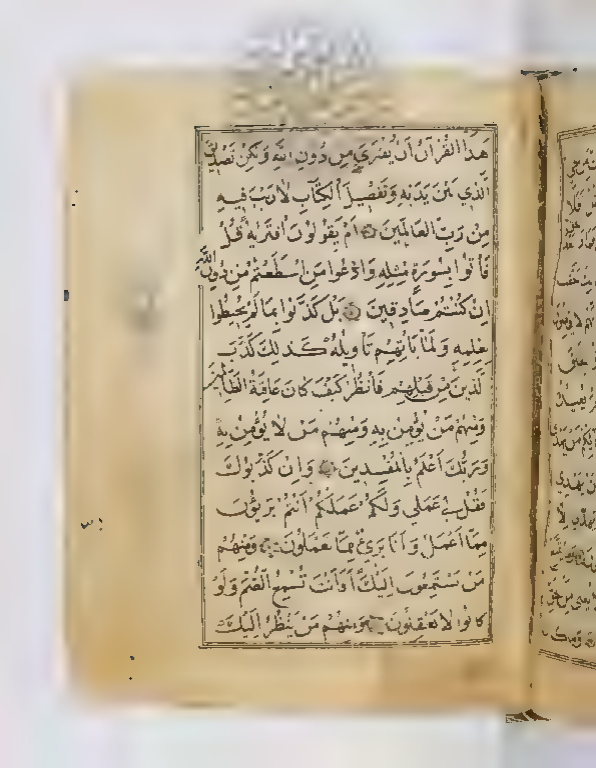 هَذَا الْقُرْآنُ أَنْ يُفْتَرَى مِنْ دُونِ اللَّهِ وَلَكِنْ تَصْدِيقَ
الَّذِي بَيْنَ يَدَيْهِ وَتَفْصِيلَ الْكِتَابِ لَا رَيْبَ فِيهِ
مِنْ رَبِّ الْعَالَمِينَ أَمْ يَقُولُونَ افْتَرَيهُ قُلْ
فَأْتُوا بِسُورَةٍ مِثْلِهِ وَادْعُوا مَنِ اسْتَطَعْتُمْ مِنْ دُونِ اللَّهِ
إِنْ كُنْتُمْ صَادِقِينَ بَلْ كَذَّبُوا بِمَا لَمْ يُحِيطُوا
بِعِلْمِهِ وَلَمَّا يَأْتِهِمْ تَأْوِيلُهُ كَذَلِكَ كَذَّبَ
الَّذِينَ مِنْ قَبْلِهِمْ فَانْظُرْ كَيْفَ كَانَ عَاقِبَةُ الظَّالِمِينَ
وَمِنْهُمْ مَنْ يُؤْمِنُ بِهِ وَمِنْهُمْ مَنْ لَا يُؤْمِنُ بِهِ
وَرَبُّكَ أَعْلَمُ بِالْمُفْسِدِينَ وَإِنْ كَذَّبُوكَ
فَقُلْ لِي عَمَلِي وَلَكُمْ عَمَلُكُمْ أَنْتُمْ بَرِيئُونَ
مِمَّا أَعْمَلُ وَأَنَا بَرِيءٌ مِمَّا تَعْمَلُونَ وَمِنْهُمْ
مَنْ يَسْتَمِعُونَ إِلَيْكَ أَفَأَنْتَ تُسْمِعُ الصُّمَّ وَلَوْ
كَانُوا لَا يَعْقِلُونَ وَمِنْهُمْ مَنْ يَنْظُرُ إِلَيْكَ